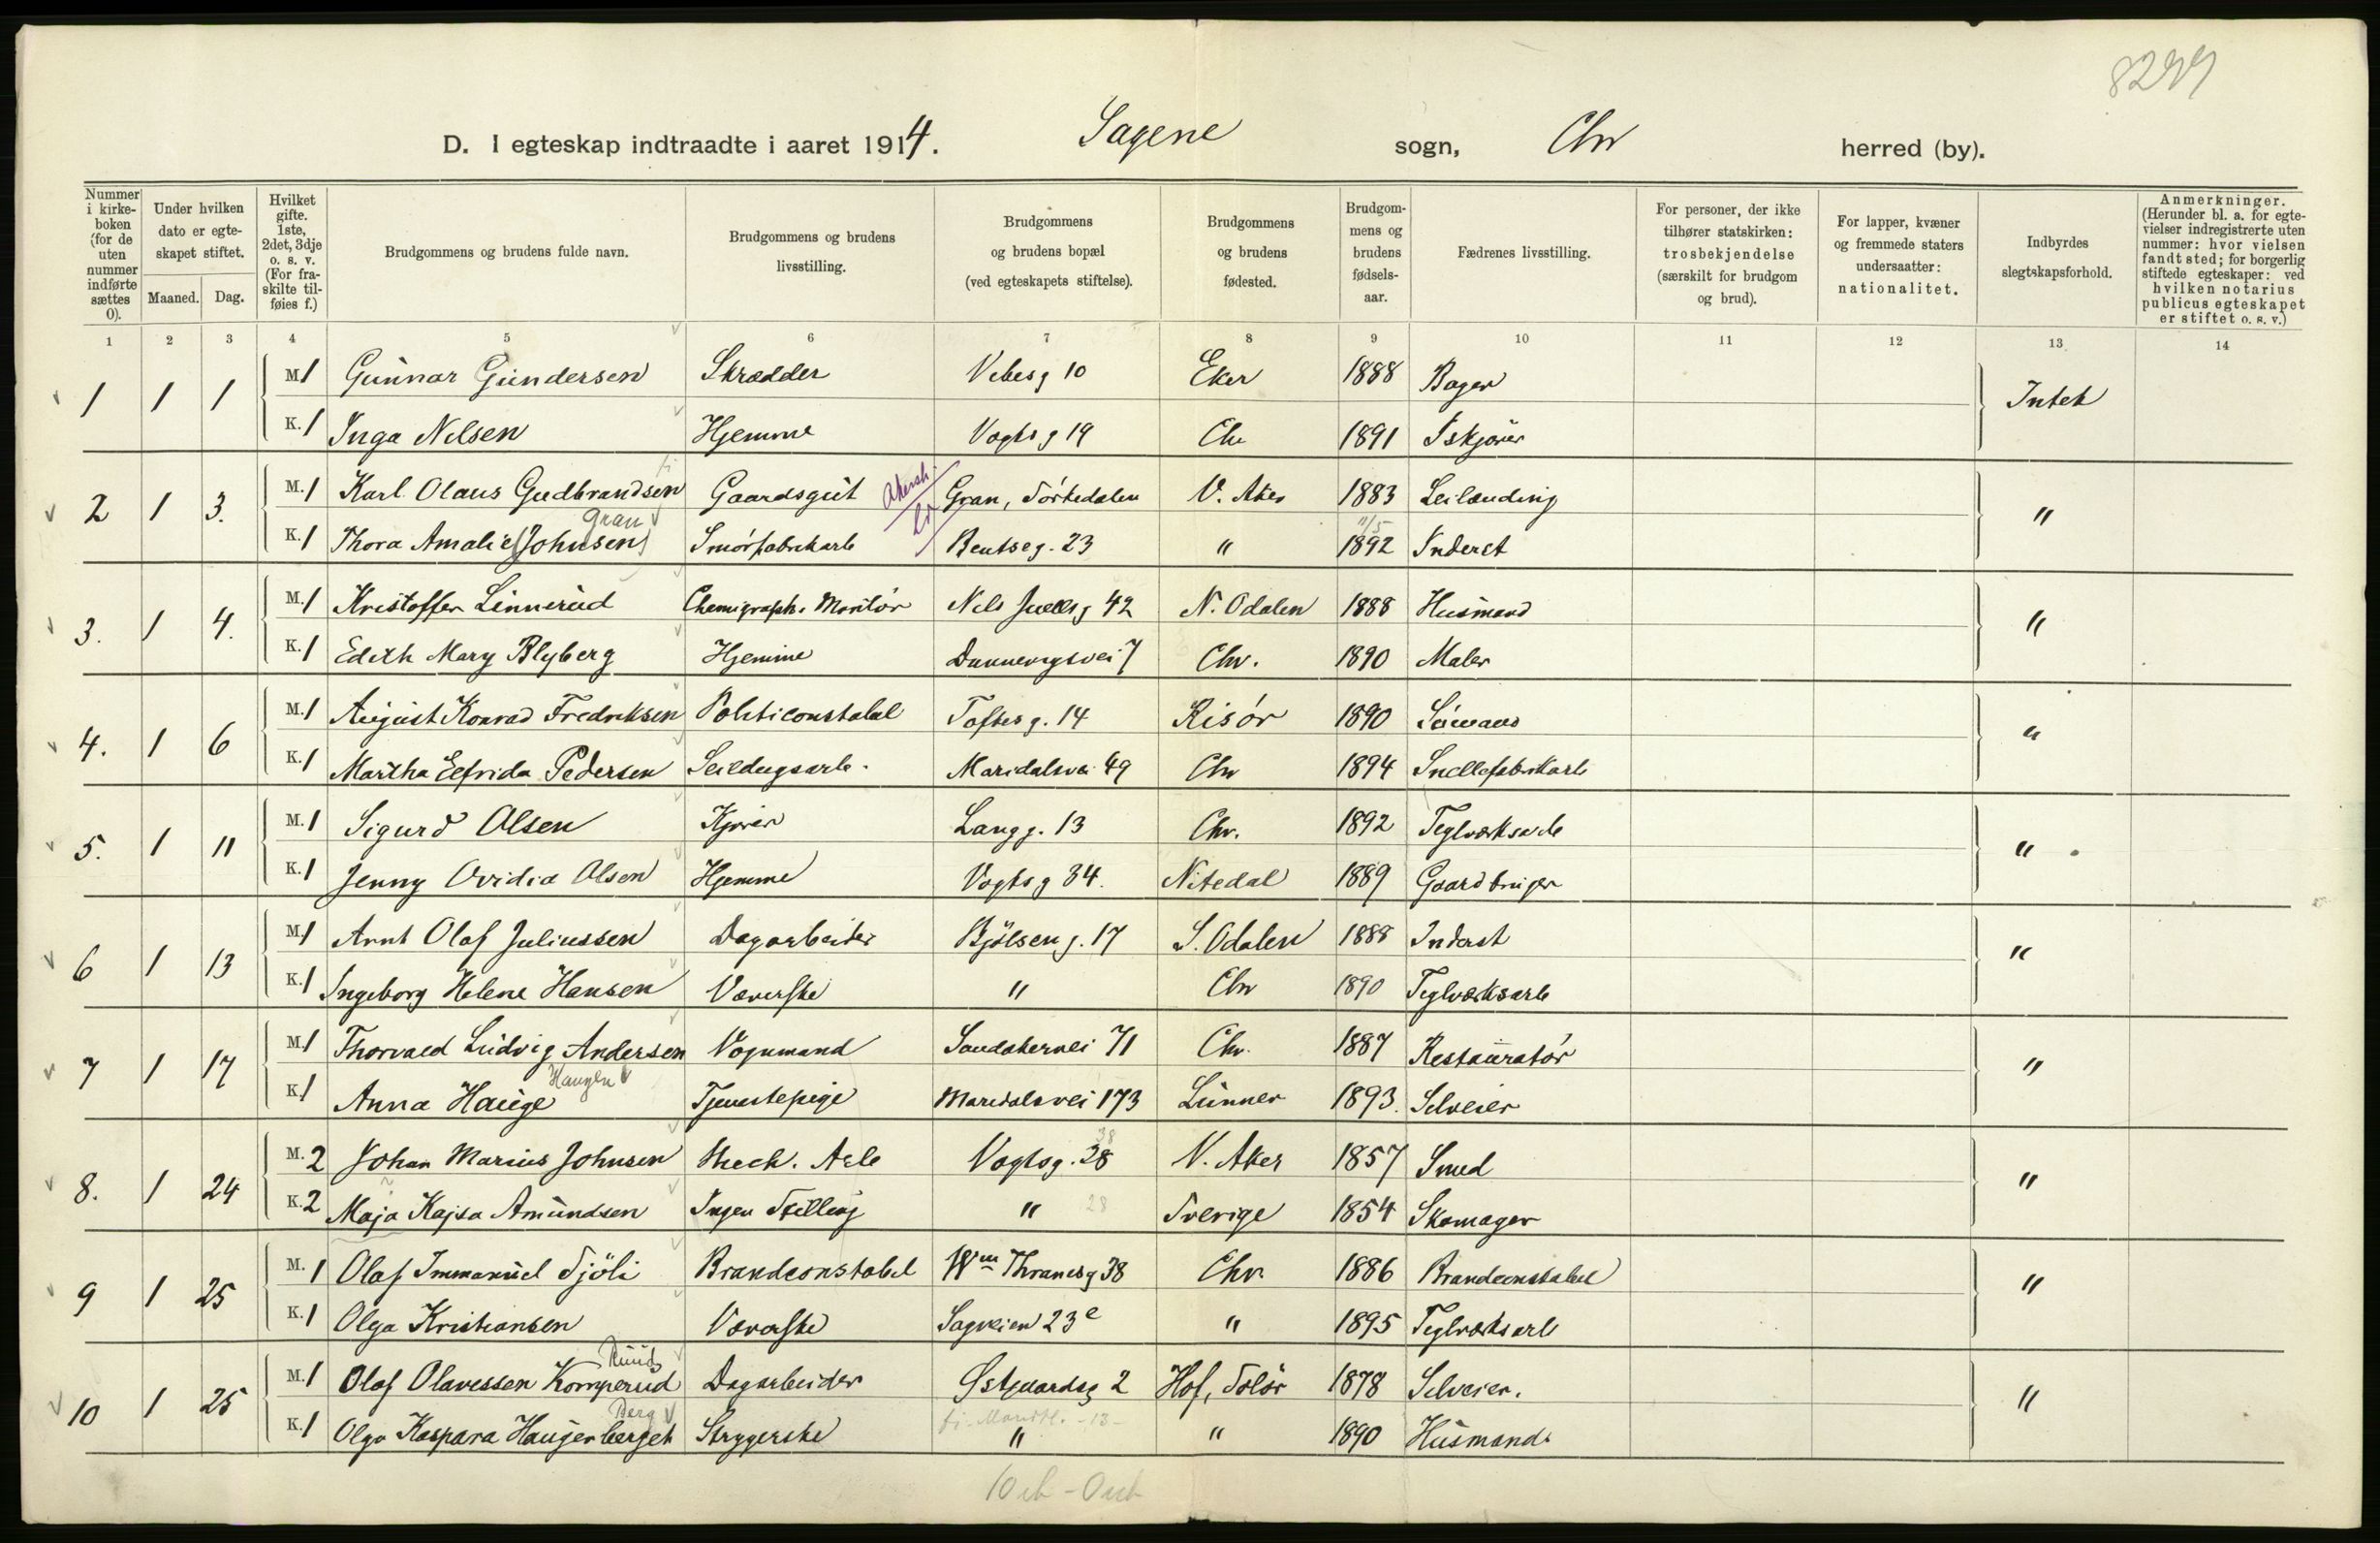 8299
D. I egteskap indtraadte i aaret 1914. Sagene sogn, Chr herred (by).
Nummer i kirkeboken (for de uten nummer indførte sættes 0).
Under hvilken dato er egteskapet stiftet.
Maaned. Dag.
Hvilket gifte. 1ste, 2det, 3dje o. s. v. (For fraskilte tilføies f.)
Brudgommens og brudens fulde navn.
Brudgommens og brudens livsstilling.
Brudgommens og brudens bopæl (ved egteskapets stiftelse).
Brudgommens og brudens fødested.
Brudgommens og brudens fødselsaar.
Fædrenes livsstilling.
For personer, der ikke tilhører statskirken: trosbekjendelse (særskilt for brudgom og brud).
For lapper, kvæner og fremmede staters undersaatter: nationalitet.
Indbyrdes slegtskapsforhold.
Anmerkninger. (Herunder bl. a. for egtevielser indregistrerte uten nummer: hvor vielsen fandt sted; for borgerlig stiftede egteskaper: ved hvilken notarius publicus egteskapet er stiftet o. s. v.)
1 2 3 4 5 6 7 8 9 10 11 12 13 14
1 1 1 M 1 Gunnar Gundersen Skrædder Vibesg 10 Eker 1888 Bager Intet
K. 1 Inga Nelsen Hjemme Vogtsg 19 Chr 1891 Iskjører
2 1 3. M. 1 Karl Olaus Gudbrandsen Gaardsgut Akersh. Gran, Sörkedalen V. Aker 1883 Leilænding "
Gran 11/5
K. 1 Thora Amalie (Johnsen) Smörfabrikarb Bentseg. 23 " 1892 Inderst
3. 1 4. M. 1 Kristoffer Linnerud Chemigraph. Montör Nils Juelsg 42 N. Odalen 1888 Husmand "
K. 1 Edith Mary Blyberg Hjemme Dannevigsvei 7 Chr. 1890 Maler
4. 1 6 M. 1 August Konrad Fredriksen Politiconstabel Toftesg. 14 Risör 1890 Sömand "
K. 1 Martha Elfrida Pedersen Seildugsarb. Maridalsvei 49 Chr 1894 Snellefabrikarb
5. 1 11 M. 1 Sigurd Olsen Kjører Langg. 13 Chr. 1892 Teglværksarb "
K. 1 Jenny Ovidia Olsen Hjemme Vogtsg 34. Nitedal 1889 Gaardbruger
6 1 13 M. 1 Arnt Olaf Juliussen Dagarbeider Bjölseng. 17 S. Odalen 1888 Inderst "
K. 1 Ingeborg Helene Hansen Væverske " Chr 1890 Teglværksarb
7 1 17 M. 1 Thorvald Ludvig Andersen Vognmand Sandakervei 71 Chr. 1887 Restauratör "
Haugen
K. 1 Anna Hauge Tjenestepige Maridalsvei 173 Lunner 1893. Selveier
38
8. 1 24 M. 2 Johan Marius Johnsen Mech. Arb Vogtsg. 28 V. Aker 1857 Smed "
K. 2 Maja Kajsa Amundsen Ingen Stilling " 28 Sverige 1854 Skomager
9 1 25 M. 1 Olaf Immanuel Sjöli Brandconstabel Wm Thranesg 38 Chr. 1886 Brandconstabel "
K. 1 Olga Kristiansen Væverske Sagveien 23 e " 1895 Teglværksarb
Ruud
10 1 25 M. 1 Olaf Olavessen Kornperud Dagarbeider Østgaardsg 2 Hof, Solör 1878 Selveier. "
Berg
K. 1 Olga Kaspara Haugerberget Strygerske " " 1890 Husmand